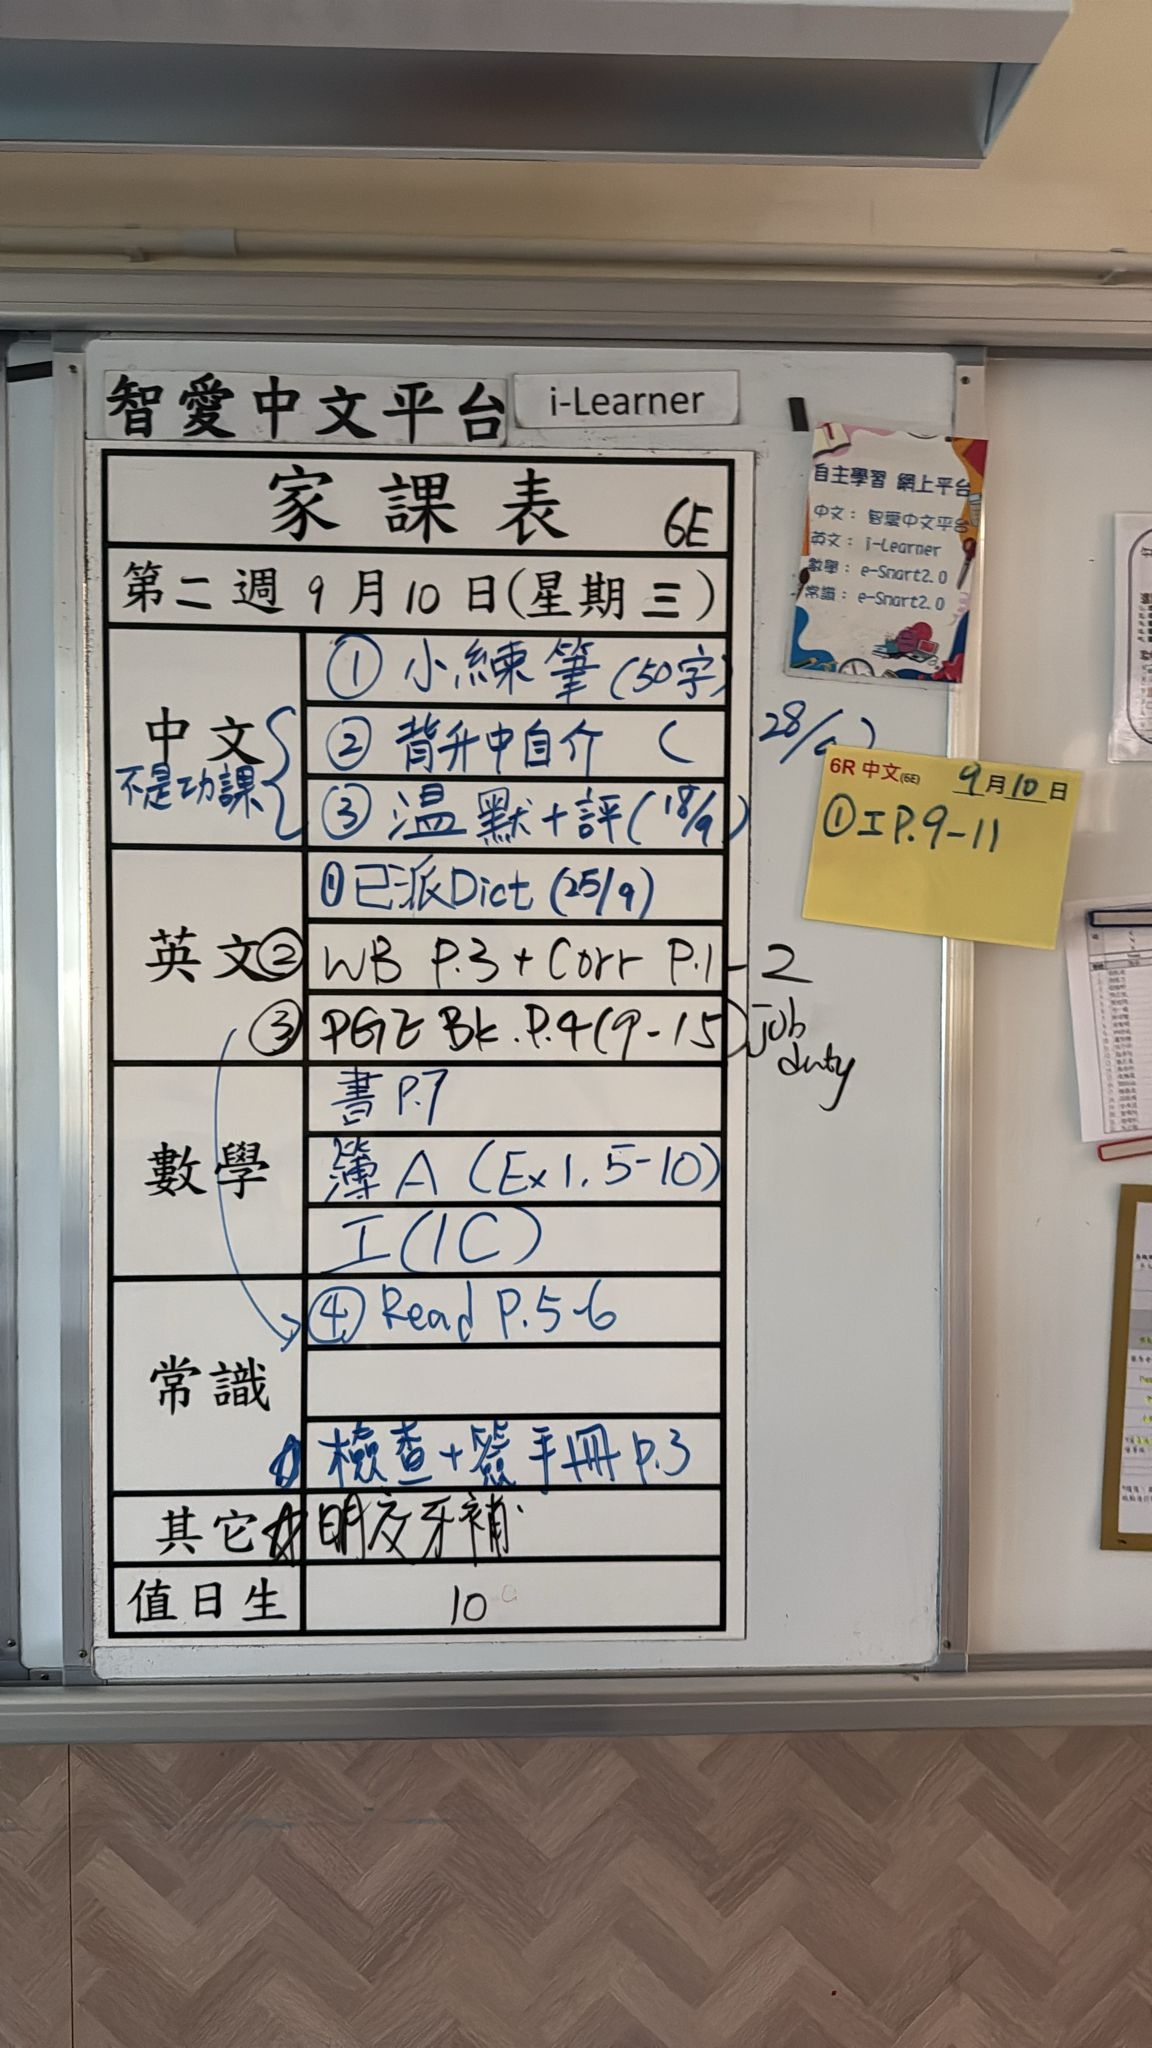 智愛中文平台 i-Learner
家課表 6E
第二週9月10日(星期三)
中文
不是功課
① 小練筆(50字)
② 背升中自介 ( 28/9)
③ 溫默+評(18/9)
英文
① 已派Dict (25/9)
② WB P.3 + Corr P.1-2
③ PGE Bk. P.4(9-15) job duty
數學
書 P.7
簿 A (Ex 1. 5-10)
工(1C)
常識
④ Read P.5-6
檢查+簽手冊 P.3
其它
明交牙補
值日生
10
自主學習 網上平台
中文: 智愛中文平台
英文: i-Learner
數學: e-Smart2.0
常識: e-Smart2.0
6R 中文(6E) 9月10日
①工 P.9-11